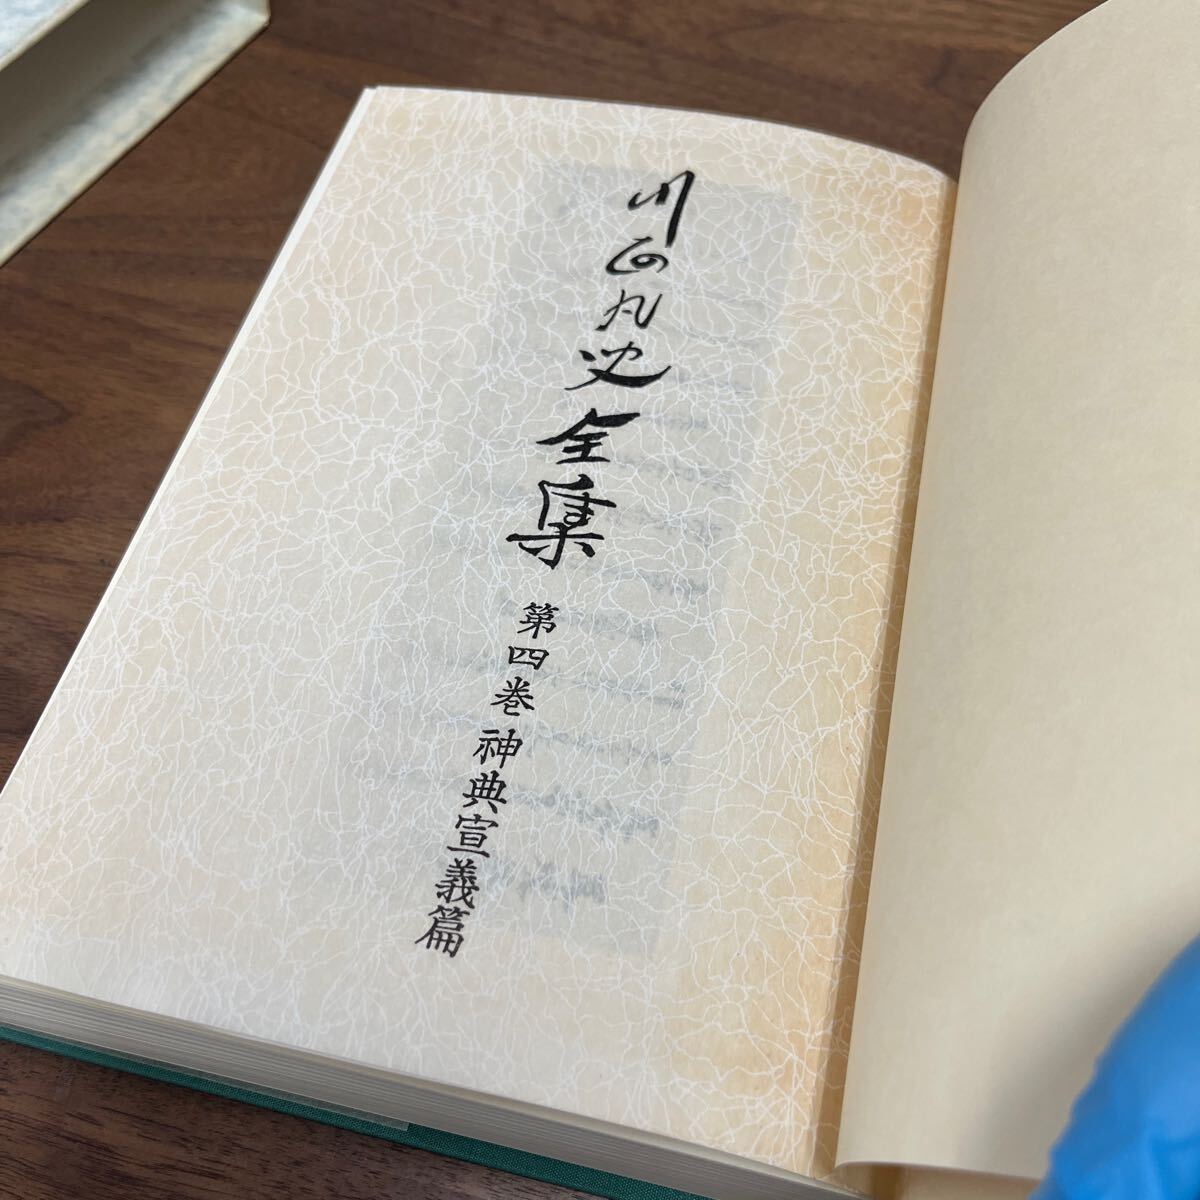 川面凡児全集 第四巻 神典宣義篇